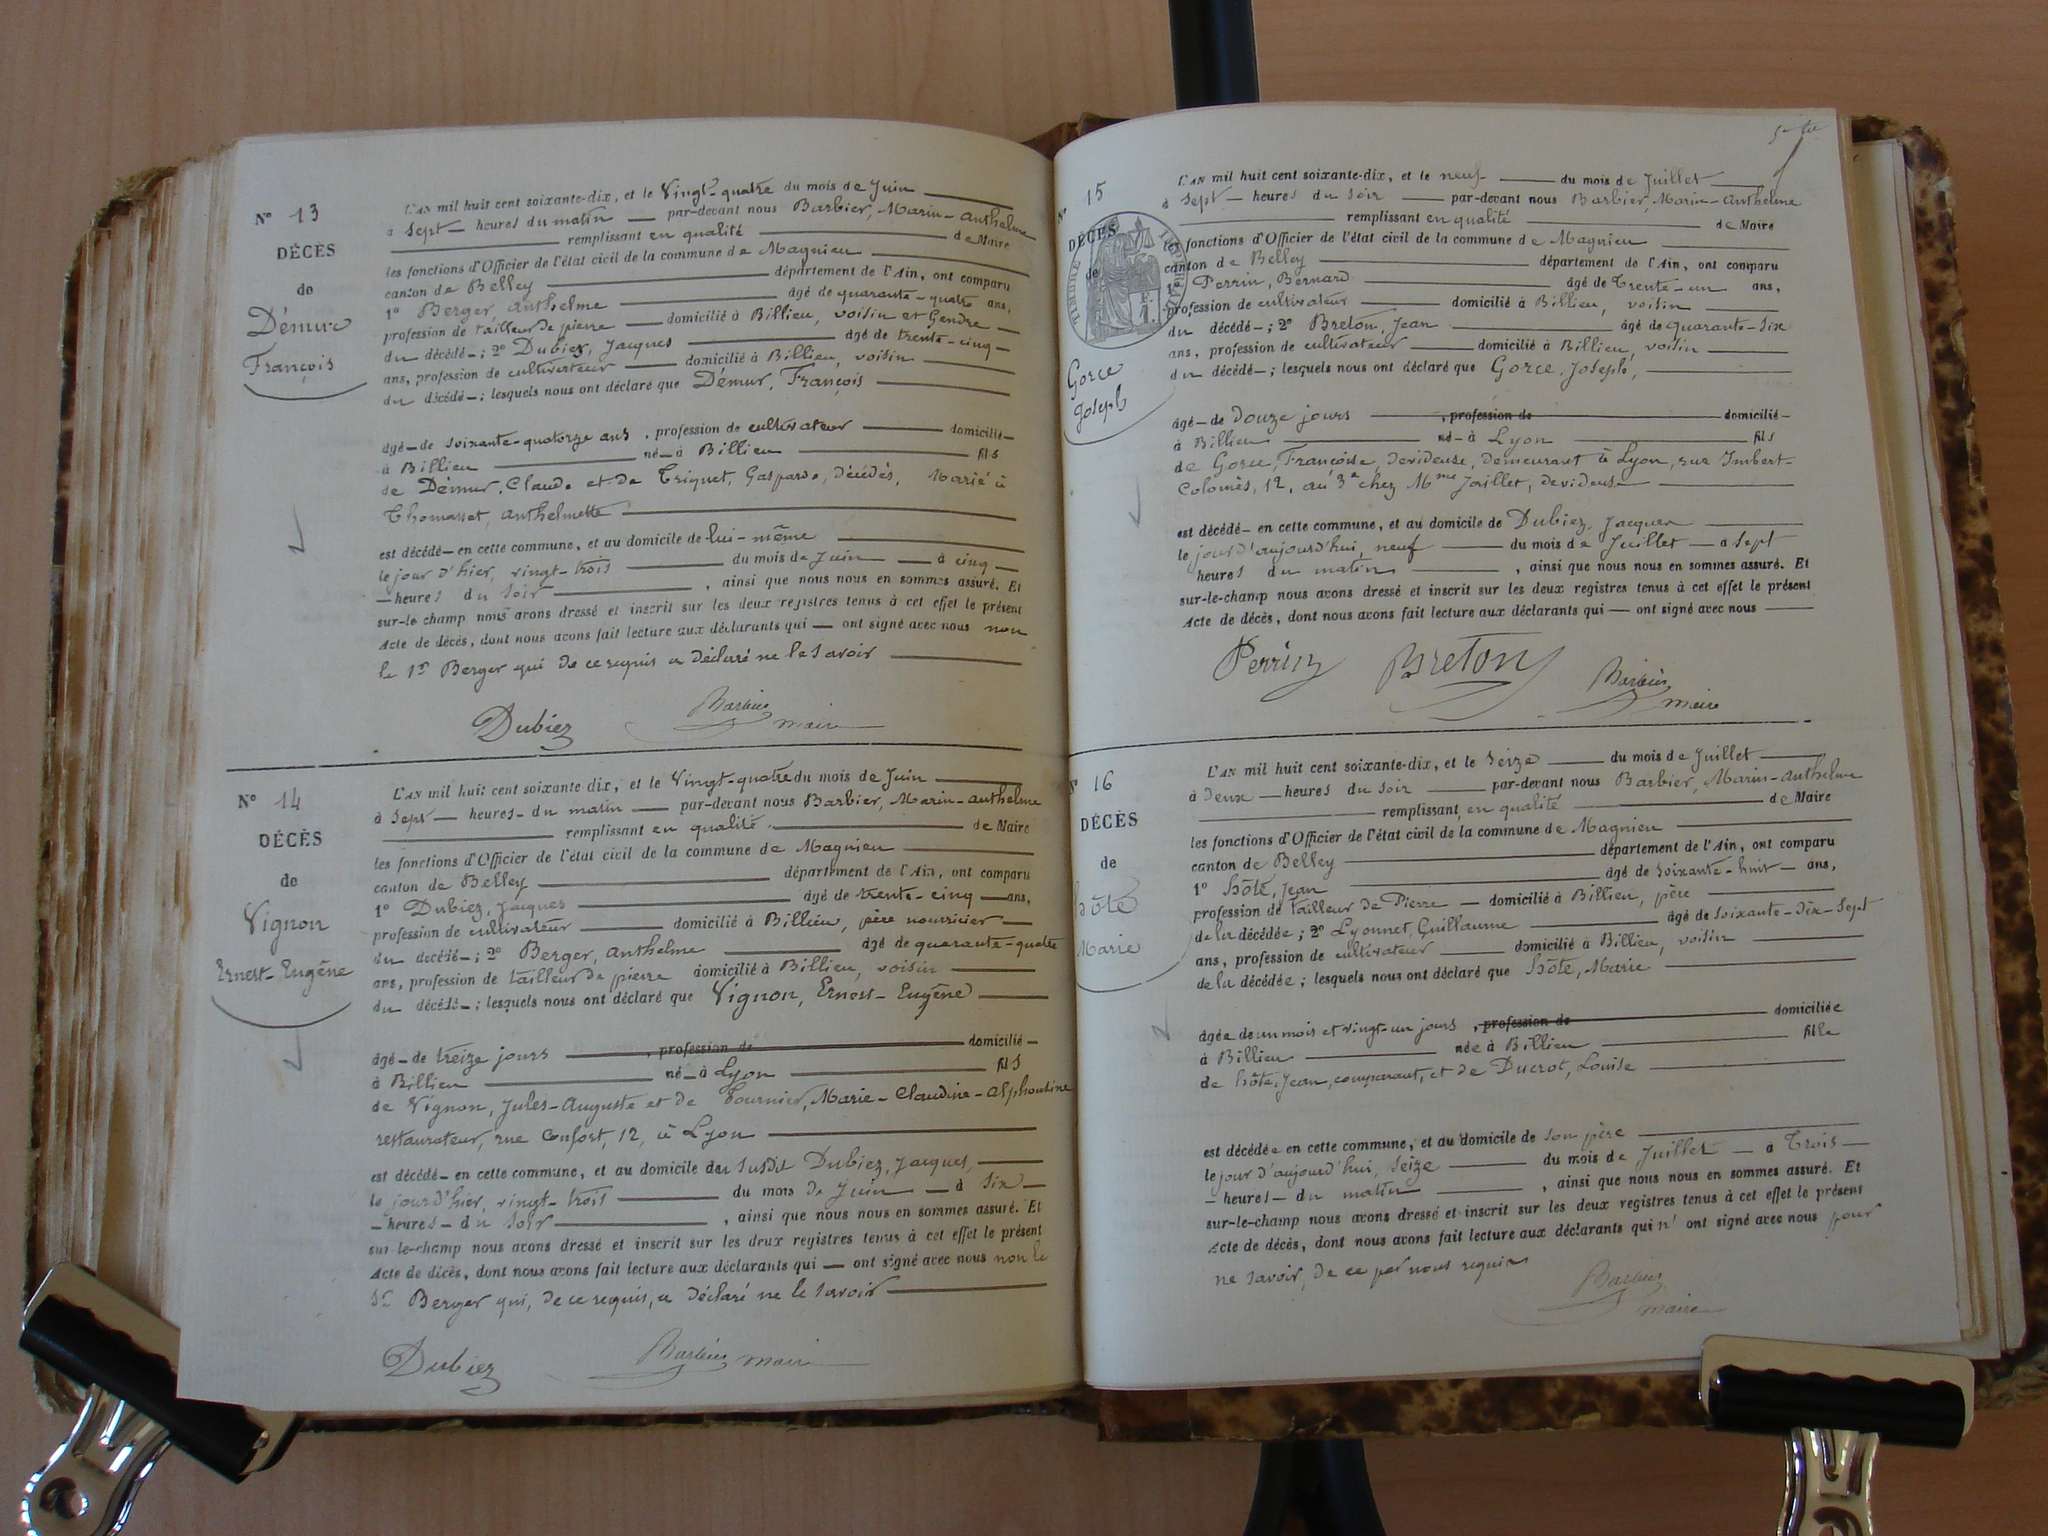 N° 13
DÉCÈS
de
Démure
François
L'AN mil huit cent soixante-dix, et le Vingt-quatre du mois de Juin
à Sept heures du matin par-devant nous Barbier, Marin-Anthelme
remplissant en qualité de Maire
les fonctions d'Officier de l'état civil de la commune de Magnieu
canton de Belley département de l'Ain, ont comparu
1° Berger, Anthelme âgé de quarante-quatre ans,
profession de tailleur de pierre domicilié à Billieu, voisin et Gendre
du décédé ; 2° Dubiez, Jacques âgé de trente-cinq
ans, profession de cultivateur domicilié à Billieu, voisin
du décédé ; lesquels nous ont déclaré que Démur, François
âgé de soixante-quatorze ans, profession de cultivateur domicilié
à Billieu né à Billieu fils
de Démur, Claude et de Triquet, Gasparde, décédés, Marié à
Thomasset, Anthelmette
est décédé en cette commune, et au domicile de lui-même
le jour d'hier, vingt-trois du mois de Juin à cinq
heures du soir, ainsi que nous nous en sommes assuré. Et
sur-le champ nous avons dressé et inscrit sur les deux registres tenus à cet effet le présent
Acte de décès, dont nous avons fait lecture aux déclarants qui ont signé avec nous non
le 1er Berger qui de ce requis a déclaré ne le savoir
Dubiez Barbier maire
N° 14
DÉCÈS
de
Vignon
Ernest-Eugène
L'AN mil huit cent soixante dix, et le Vingt-quatre du mois de Juin
à Sept heures du matin par-devant nous Barbier, Marin-Anthelme
remplissant en qualité de Maire
les fonctions d'Officier de l'état civil de la commune de Magnieu
canton de Belley département de l'Ain, ont comparu
1° Dubiez, Jacques âgé de trente-cinq ans,
profession de cultivateur domicilié à Billieu, père nourricier
du décédé ; 2° Berger, Anthelme âgé de quarante-quatre
ans, profession de tailleur de pierre domicilié à Billieu, voisin
du décédé ; lesquels nous ont déclaré que Vignon, Ernest-Eugène
âgé de treize jours, profession de domicilié
à Billieu né à Lyon fils
de Vignon, Jules-Auguste et de Fournier, Marie-Claudine-Alphonsine
restaurateur, rue Confort, 12, à Lyon
est décédé en cette commune, et au domicile du susdit Dubiez, Jacques,
le jour d'hier, vingt-trois du mois de Juin à Six
heures du soir, ainsi que nous nous en sommes assuré. Et
sur-le-champ nous avons dressé et inscrit sur les deux registres tenus à cet effet le présent
Acte de décès, dont nous avons fait lecture aux déclarants qui ont signé avec nous non le
Sr Berger qui, de ce requis, a déclaré ne le savoir
Dubiez Barbier maire
N° 15
DÉCÈS
de
TIMBRE
Gorce
Joseph
L'AN mil huit cent soixante-dix, et le neuf du mois de Juillet
à Sept heures du soir par-devant nous Barbier, Marin-Anthelme
remplissant en qualité de Maire
les fonctions d'Officier de l'état civil de la commune de Magnieu
canton de Belley département de l'Ain, ont comparu
1° Perrin, Bernard âgé de Trente-un ans,
profession de cultivateur domicilié à Billieu, voisin
du décédé ; 2° Breton, Jean âgé de quarante-six
ans, profession de cultivateur domicilié à Billieu, voisin
du décédé ; lesquels nous ont déclaré que Gorce, Joseph,
âgé de Douze jours, profession de domicilié
à Billieu né à Lyon fils
de Gorce, Françoise, devideuse, demeurant à Lyon, rue Imbert-
Colomès, 12, au 3e chez Mme Jaillet, devideuse
est décédé en cette commune, et au domicile de Dubiez, Jacques
le jour d'aujourd'hui, neuf du mois de Juillet à Sept
heures du matin, ainsi que nous nous en sommes assuré. Et
sur-le-champ nous avons dressé et inscrit sur les deux registres tenus à cet effet le présent
Acte de décès, dont nous avons fait lecture aux déclarants qui ont signé avec nous
Perrin Breton Barbier maire
N° 16
DÉCÈS
de
hôte
Marie
L'AN mil huit cent soixante-dix, et le Seize du mois de Juillet
à Deux heures du soir par-devant nous Barbier, Marin-Anthelme
remplissant en qualité de Maire
les fonctions d'Officier de l'état civil de la commune de Magnieu
canton de Belley département de l'Ain, ont comparu
1° hôte, Jean âgé de soixante-huit ans,
profession de tailleur de Pierre domicilié à Billieu, père
de la décédée ; 2° Lyonnet, Guillaume âgé de soixante-dix-sept
ans, profession de cultivateur domicilié à Billieu, voisin
de la décédée ; lesquels nous ont déclaré que hôte, Marie
âgée de un mois et vingt-un jours, profession de domiciliée
à Billieu née à Billieu fille
de hôte, Jean, comparant, et de Ducrot, Louise
est décédée en cette commune, et au domicile de son père
le jour d'aujourd'hui, seize du mois de Juillet à Trois
heures du matin, ainsi que nous nous en sommes assuré. Et
sur-le-champ nous avons dressé et inscrit sur les deux registres tenus à cet effet le présent
Acte de décès, dont nous avons fait lecture aux déclarants qui n' ont signé avec nous pour
ne savoir, de ce par nous requis
Barbier maire